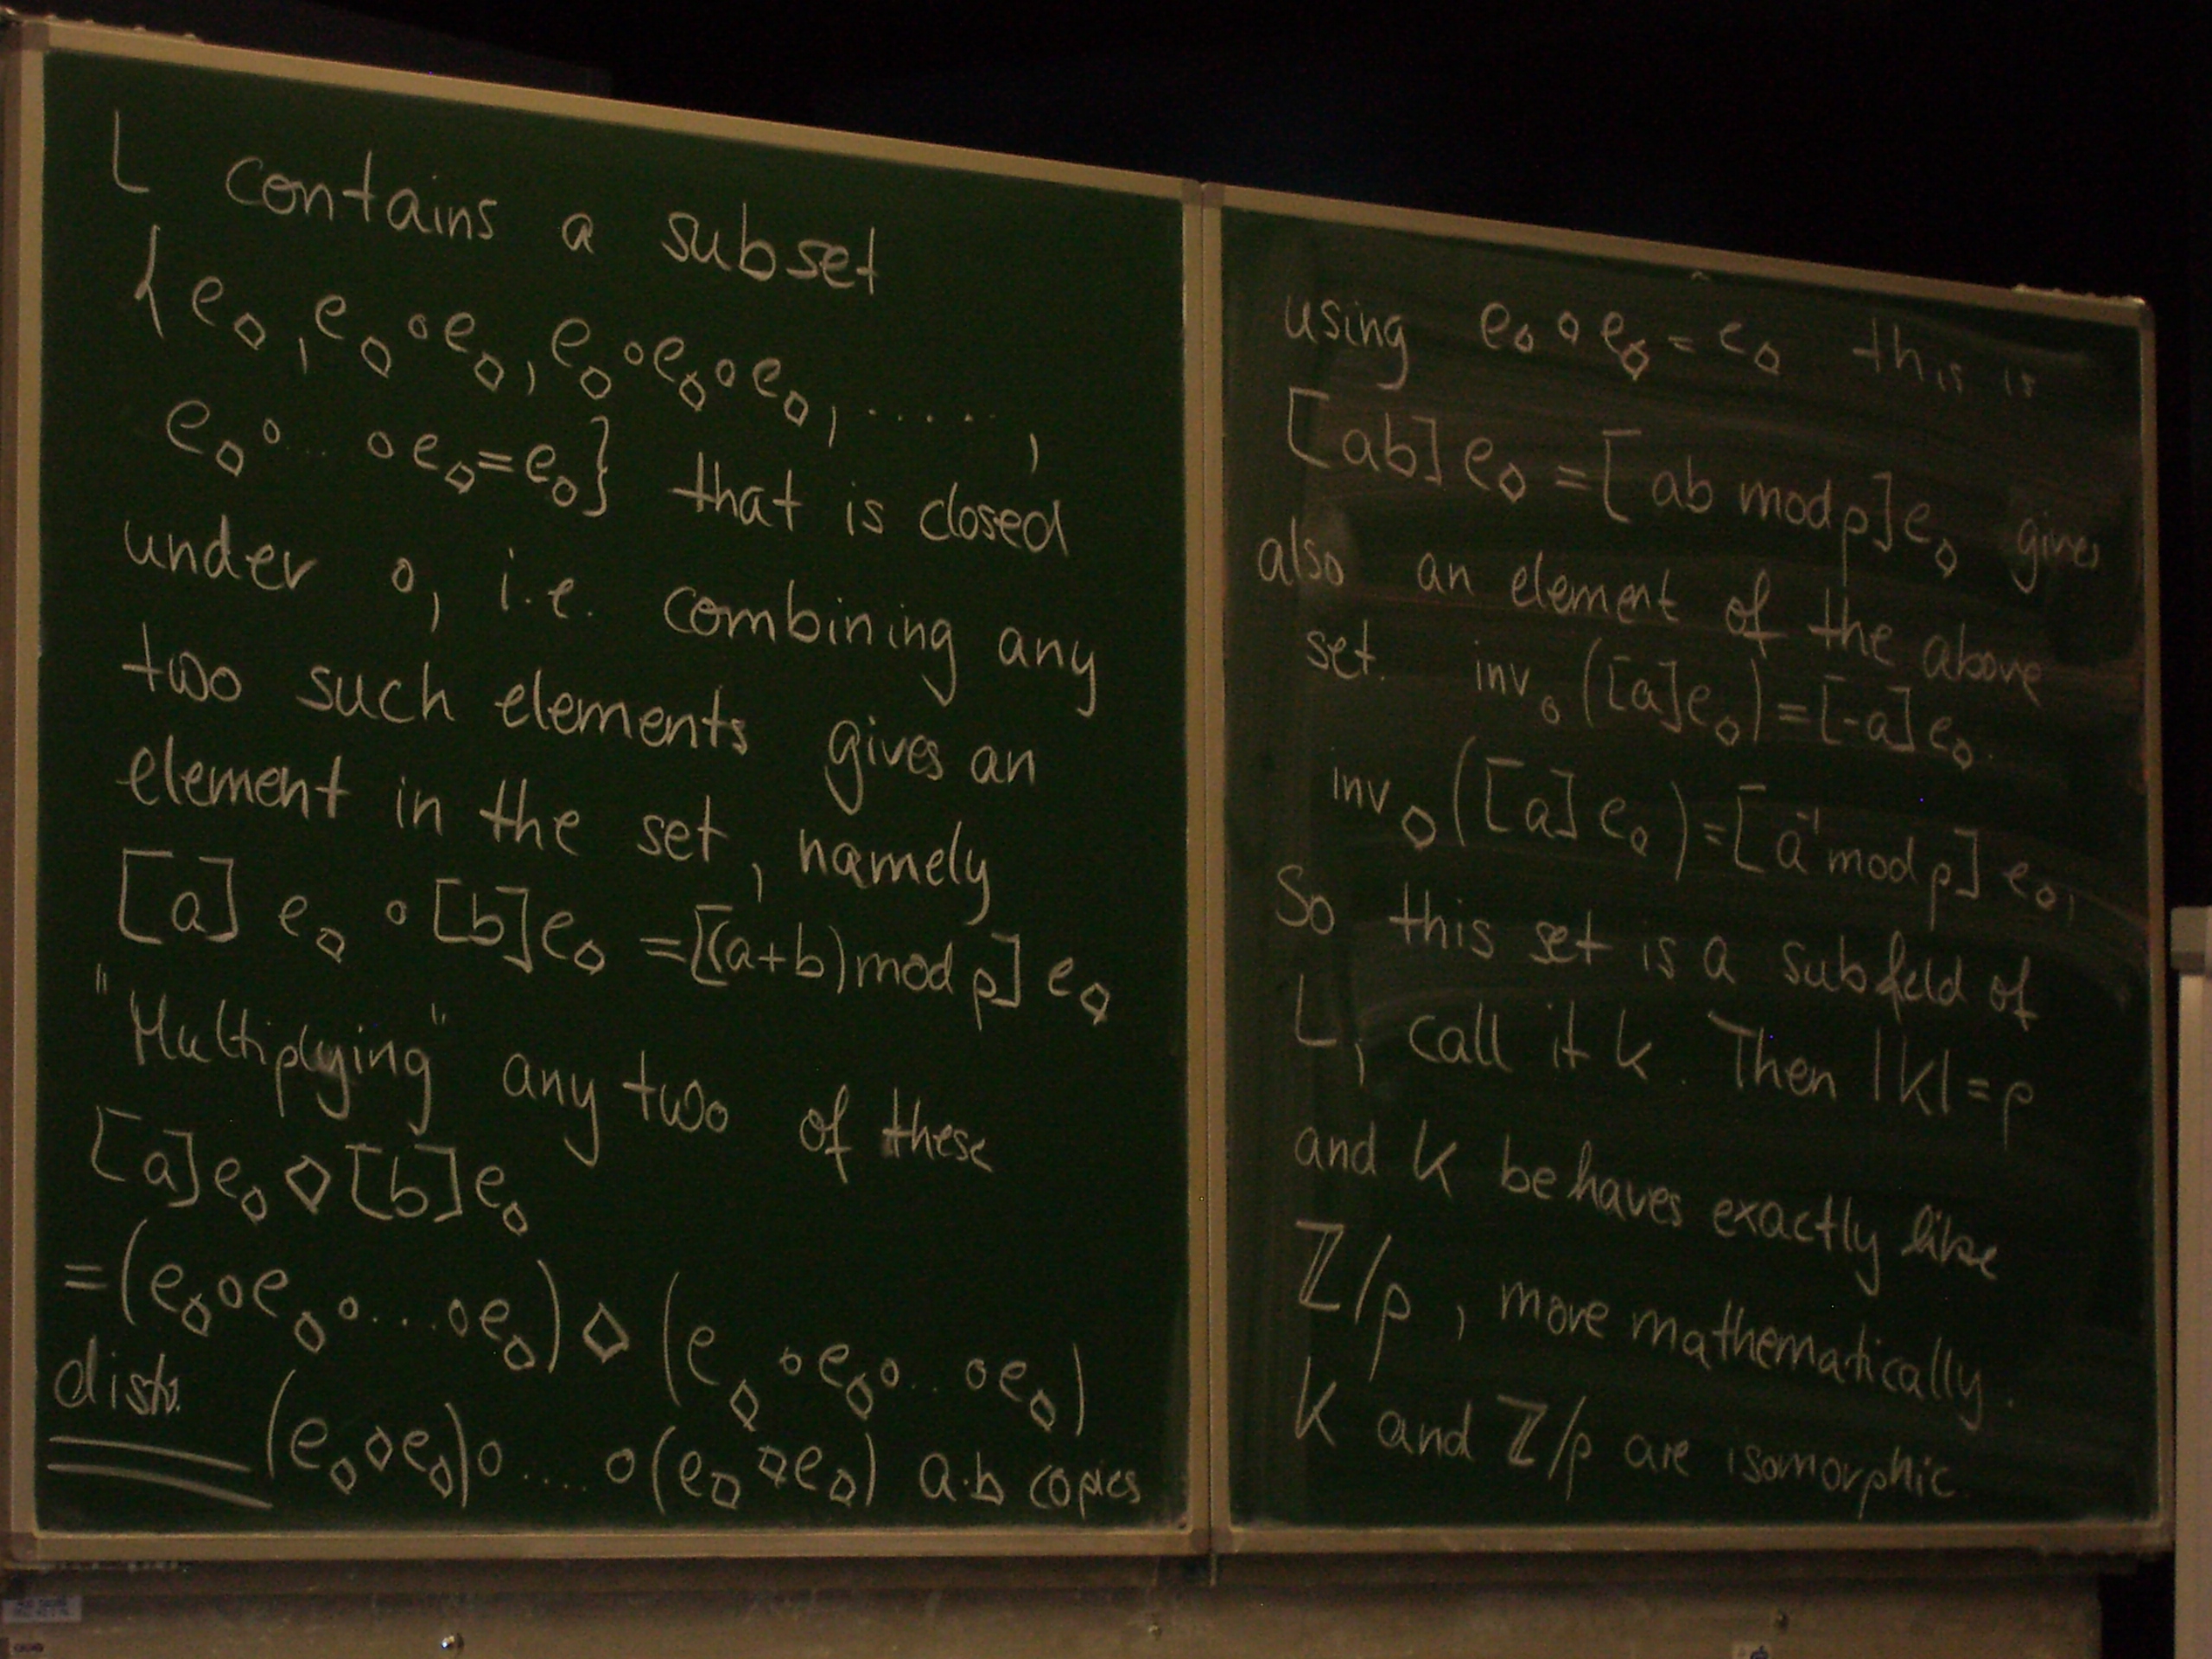 L contains a subset
{e◇, e◇∘e◇, e◇∘e◇∘e◇, ....,
e◇∘... ∘e◇=e∘} that is closed
under ∘, i.e. combining any
two such elements gives an
element in the set, namely
[a] e◇ ∘ [b]e◇ =[(a+b)mod p] e◇
"Multiplying" any two of these
[a]e◇ ◇ [b]e◇
=(e◇∘e◇∘...∘e◇) ◇ (e◇∘e◇∘..∘e◇)
distr. (e◇◇e◇)∘....∘(e◇◇e◇) a·b copies
using e◇◇e◇ = e◇ this is
[ab]e◇ = [ab mod p]e◇ gives
also an element of the above
set. inv∘([a]e◇)=[-a]e◇.
inv◇([a]e◇)=[a⁻¹ mod p] e◇,
So this set is a subfield of
L, call it K. Then |K|=p
and K behaves exactly like
ℤ/p, more mathematically.
K and ℤ/p are isomorphic.